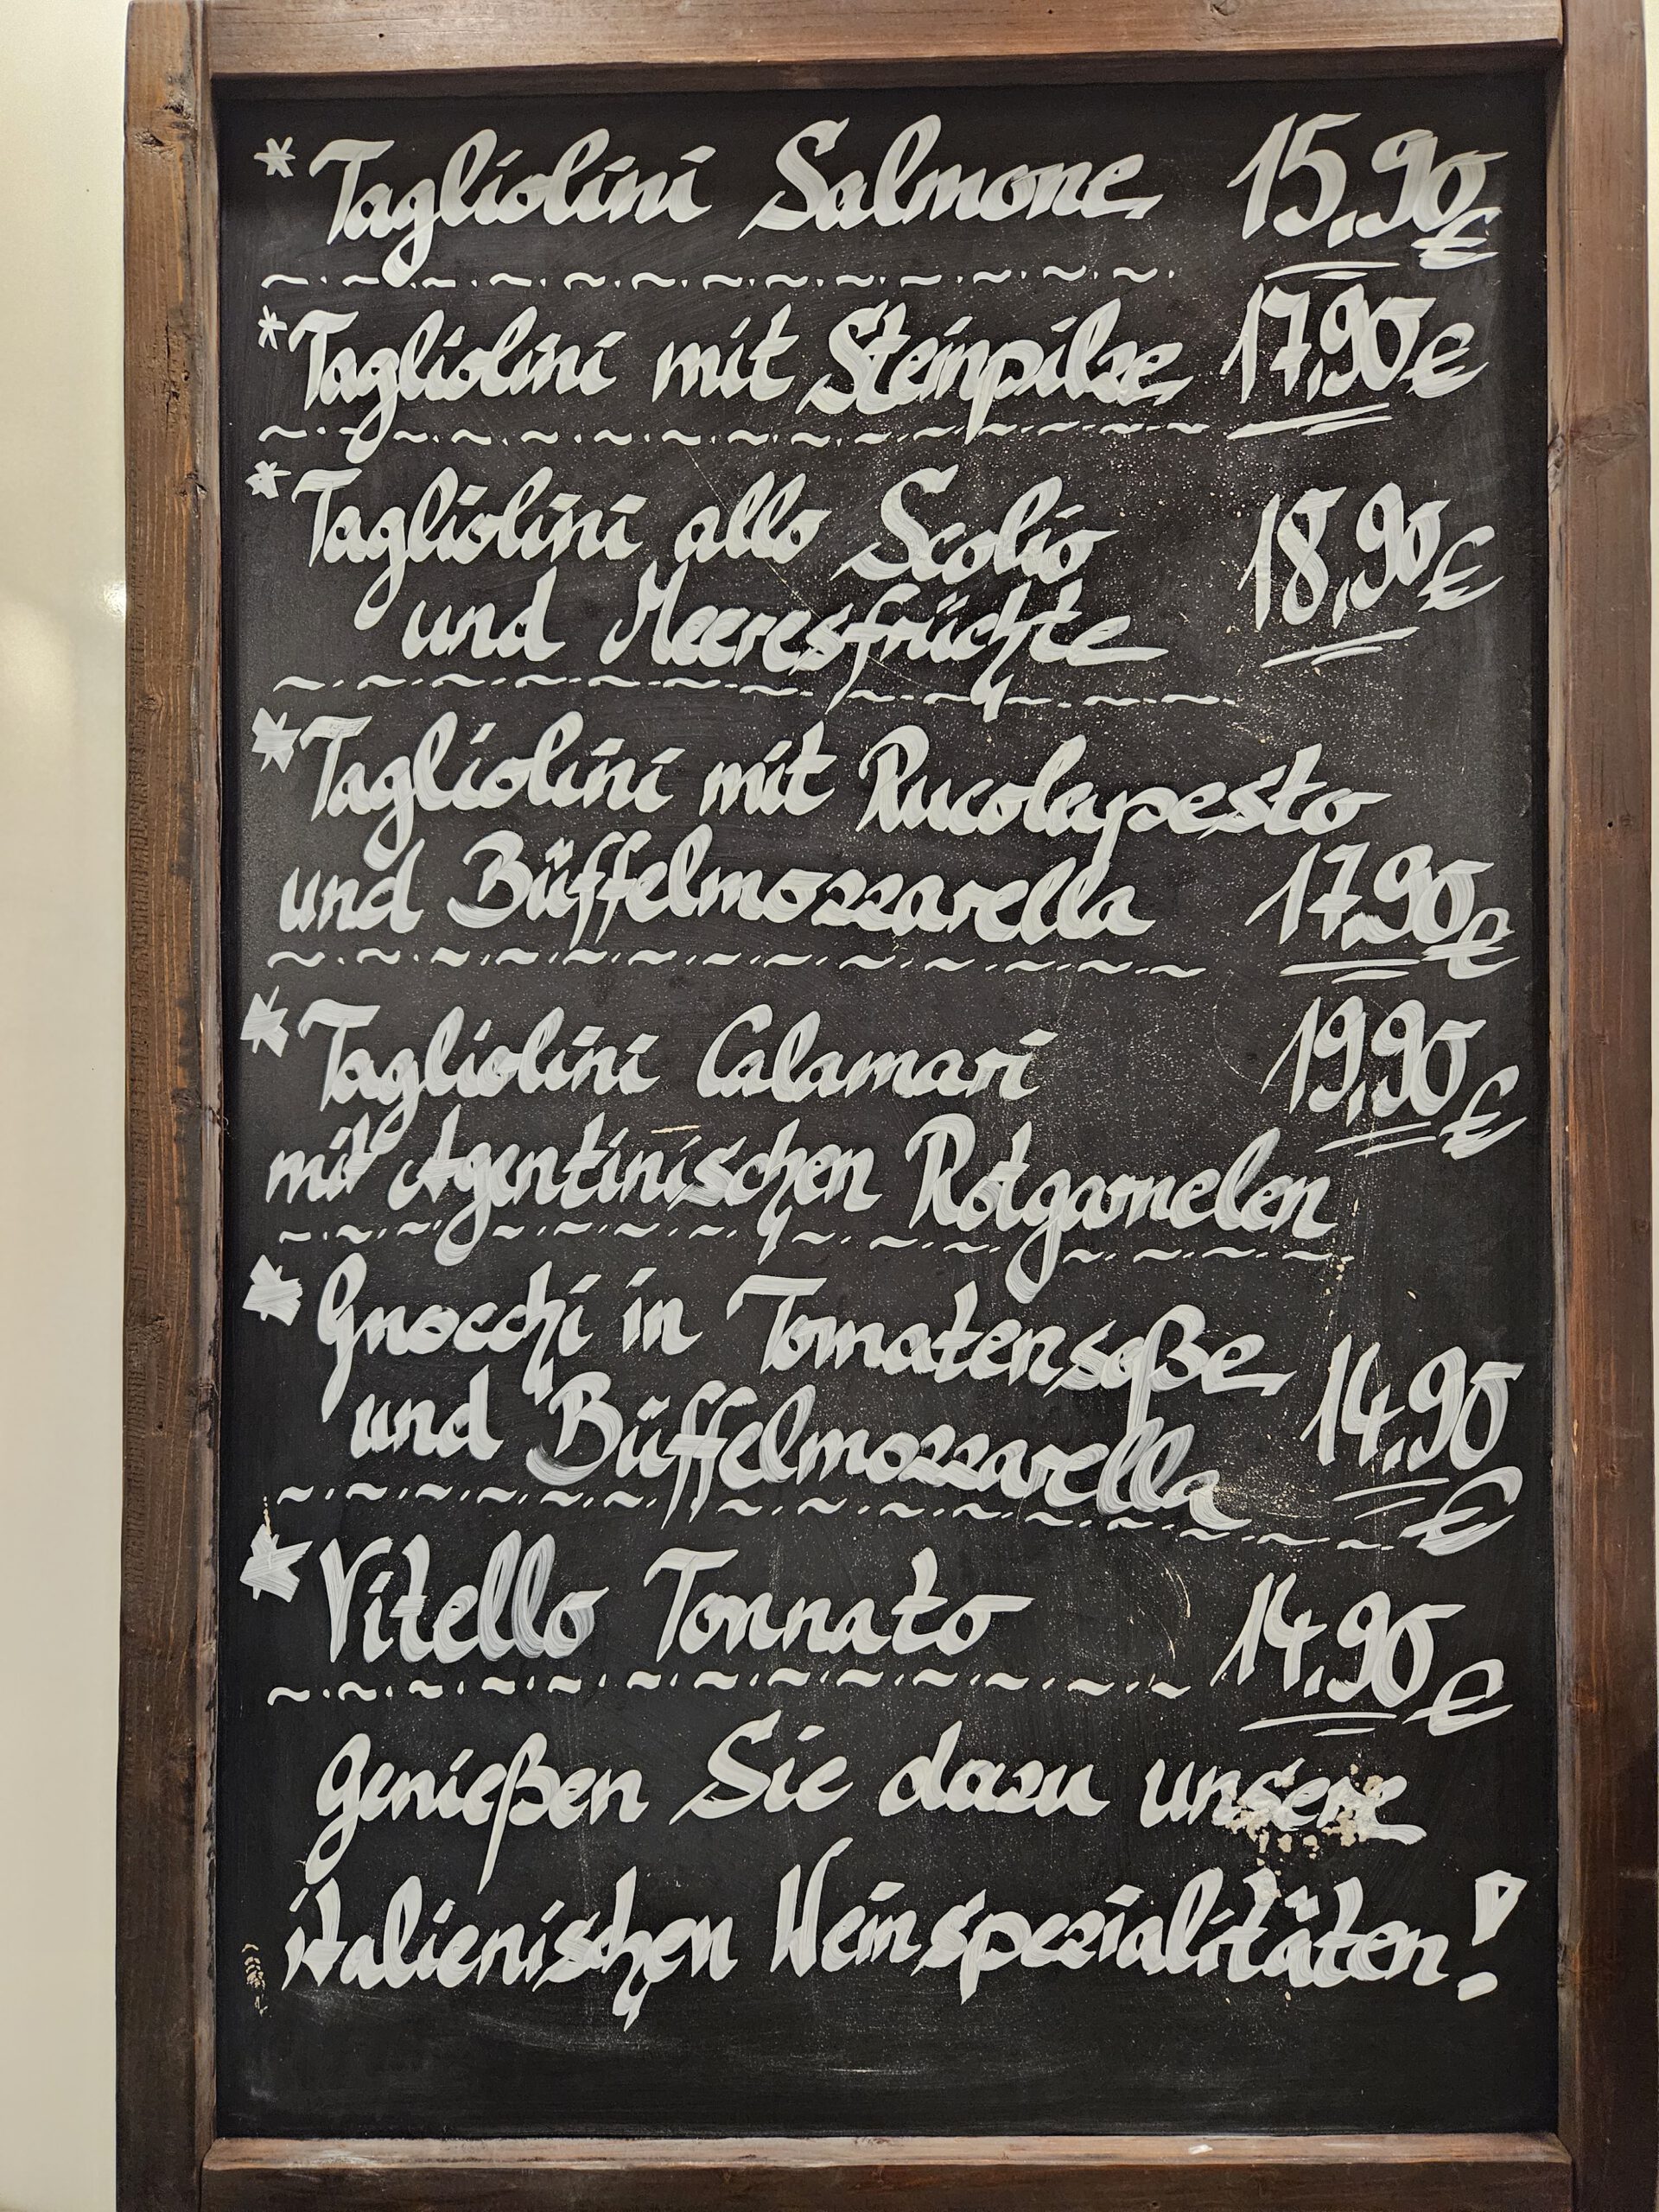 * Tagliolini Salmone 15,90 €
* Tagliolini mit Steinpilze 17,90 €
* Tagliolini allo Scolio 18,90 €
und Meeresfrüchte
* Tagliolini mit Rucolapesto
und Büffelmozzarella 17,90 €
* Tagliolini Calamari 19,90 €
mit Agentinischen Rotgarnelen
* Gnocchi in Tomatensoße 14,90 €
und Büffelmozzarella
* Vitello Tonnato 14,90 €
genießen Sie dazu unsere
italienischen Weinspezialitäten!